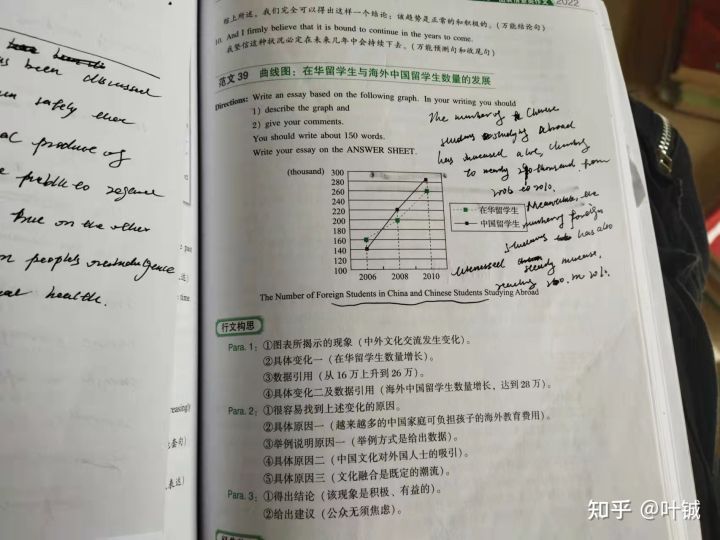 综上所述，我们完全可以得出这样一个结论：该趋势是正常的和积极的。（万能结论句）
2022
10. And I firmly believe that it is bound to continue in the years to come.
我坚信这种状况必定在未来几年中会持续下去。（万能预测句和收尾句）
范文 39 曲线图：在华留学生与海外中国留学生数量的发展
Directions: Write an essay based on the following graph. In your writing you should
1) describe the graph and
2) give your comments.
You should write about 150 words.
Write your essay on the ANSWER SHEET.
The number of Chinese
students studying abroad
has increased a lot, climbing
to nearly thousand from
2006 to 2010.
Meanwhile, the
number of foreign
students has also
witnessed steady increase,
reaching in 2010.
(thousand)
300
280
260
240
220
200
180
160
140
120
100
2006 2008 2010
在华留学生
中国留学生
The Number of Foreign Students in China and Chinese Students Studying Abroad
行文构思
Para. 1: ①图表所揭示的现象（中外文化交流发生变化）。
②具体变化一（在华留学生数量增长）。
③数据引用（从 16 万上升到 26 万）。
④具体变化二及数据引用（海外中国留学生数量增长，达到 28 万）。
Para. 2: ①很容易找到上述变化的原因。
②具体原因一（越来越多的中国家庭可负担孩子的海外教育费用）。
③举例说明原因一（举例方式是给出数据）。
④具体原因二（中国文化对外国人士的吸引）。
⑤具体原因三（文化融合是既定的潮流）。
Para. 3: ①得出结论（该现象是积极、有益的）。
②给出建议（公众无须焦虑）。
been discussed
safely
produce of
public to
true on the other
people's overindulgence
health.
知乎 @叶铖